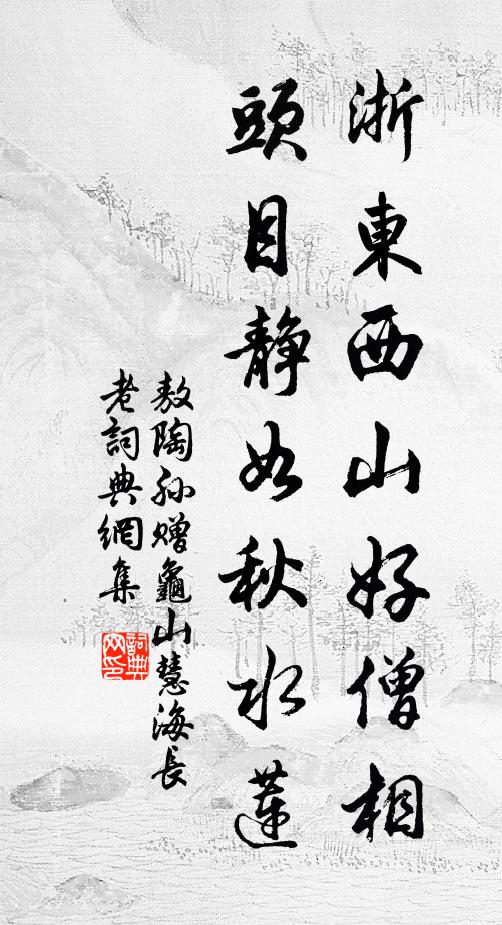 浙東西山好僧相
頭目靜如秋水蓮
敖陶孫贈龜山慧海長
老詞典網集
詞典網印